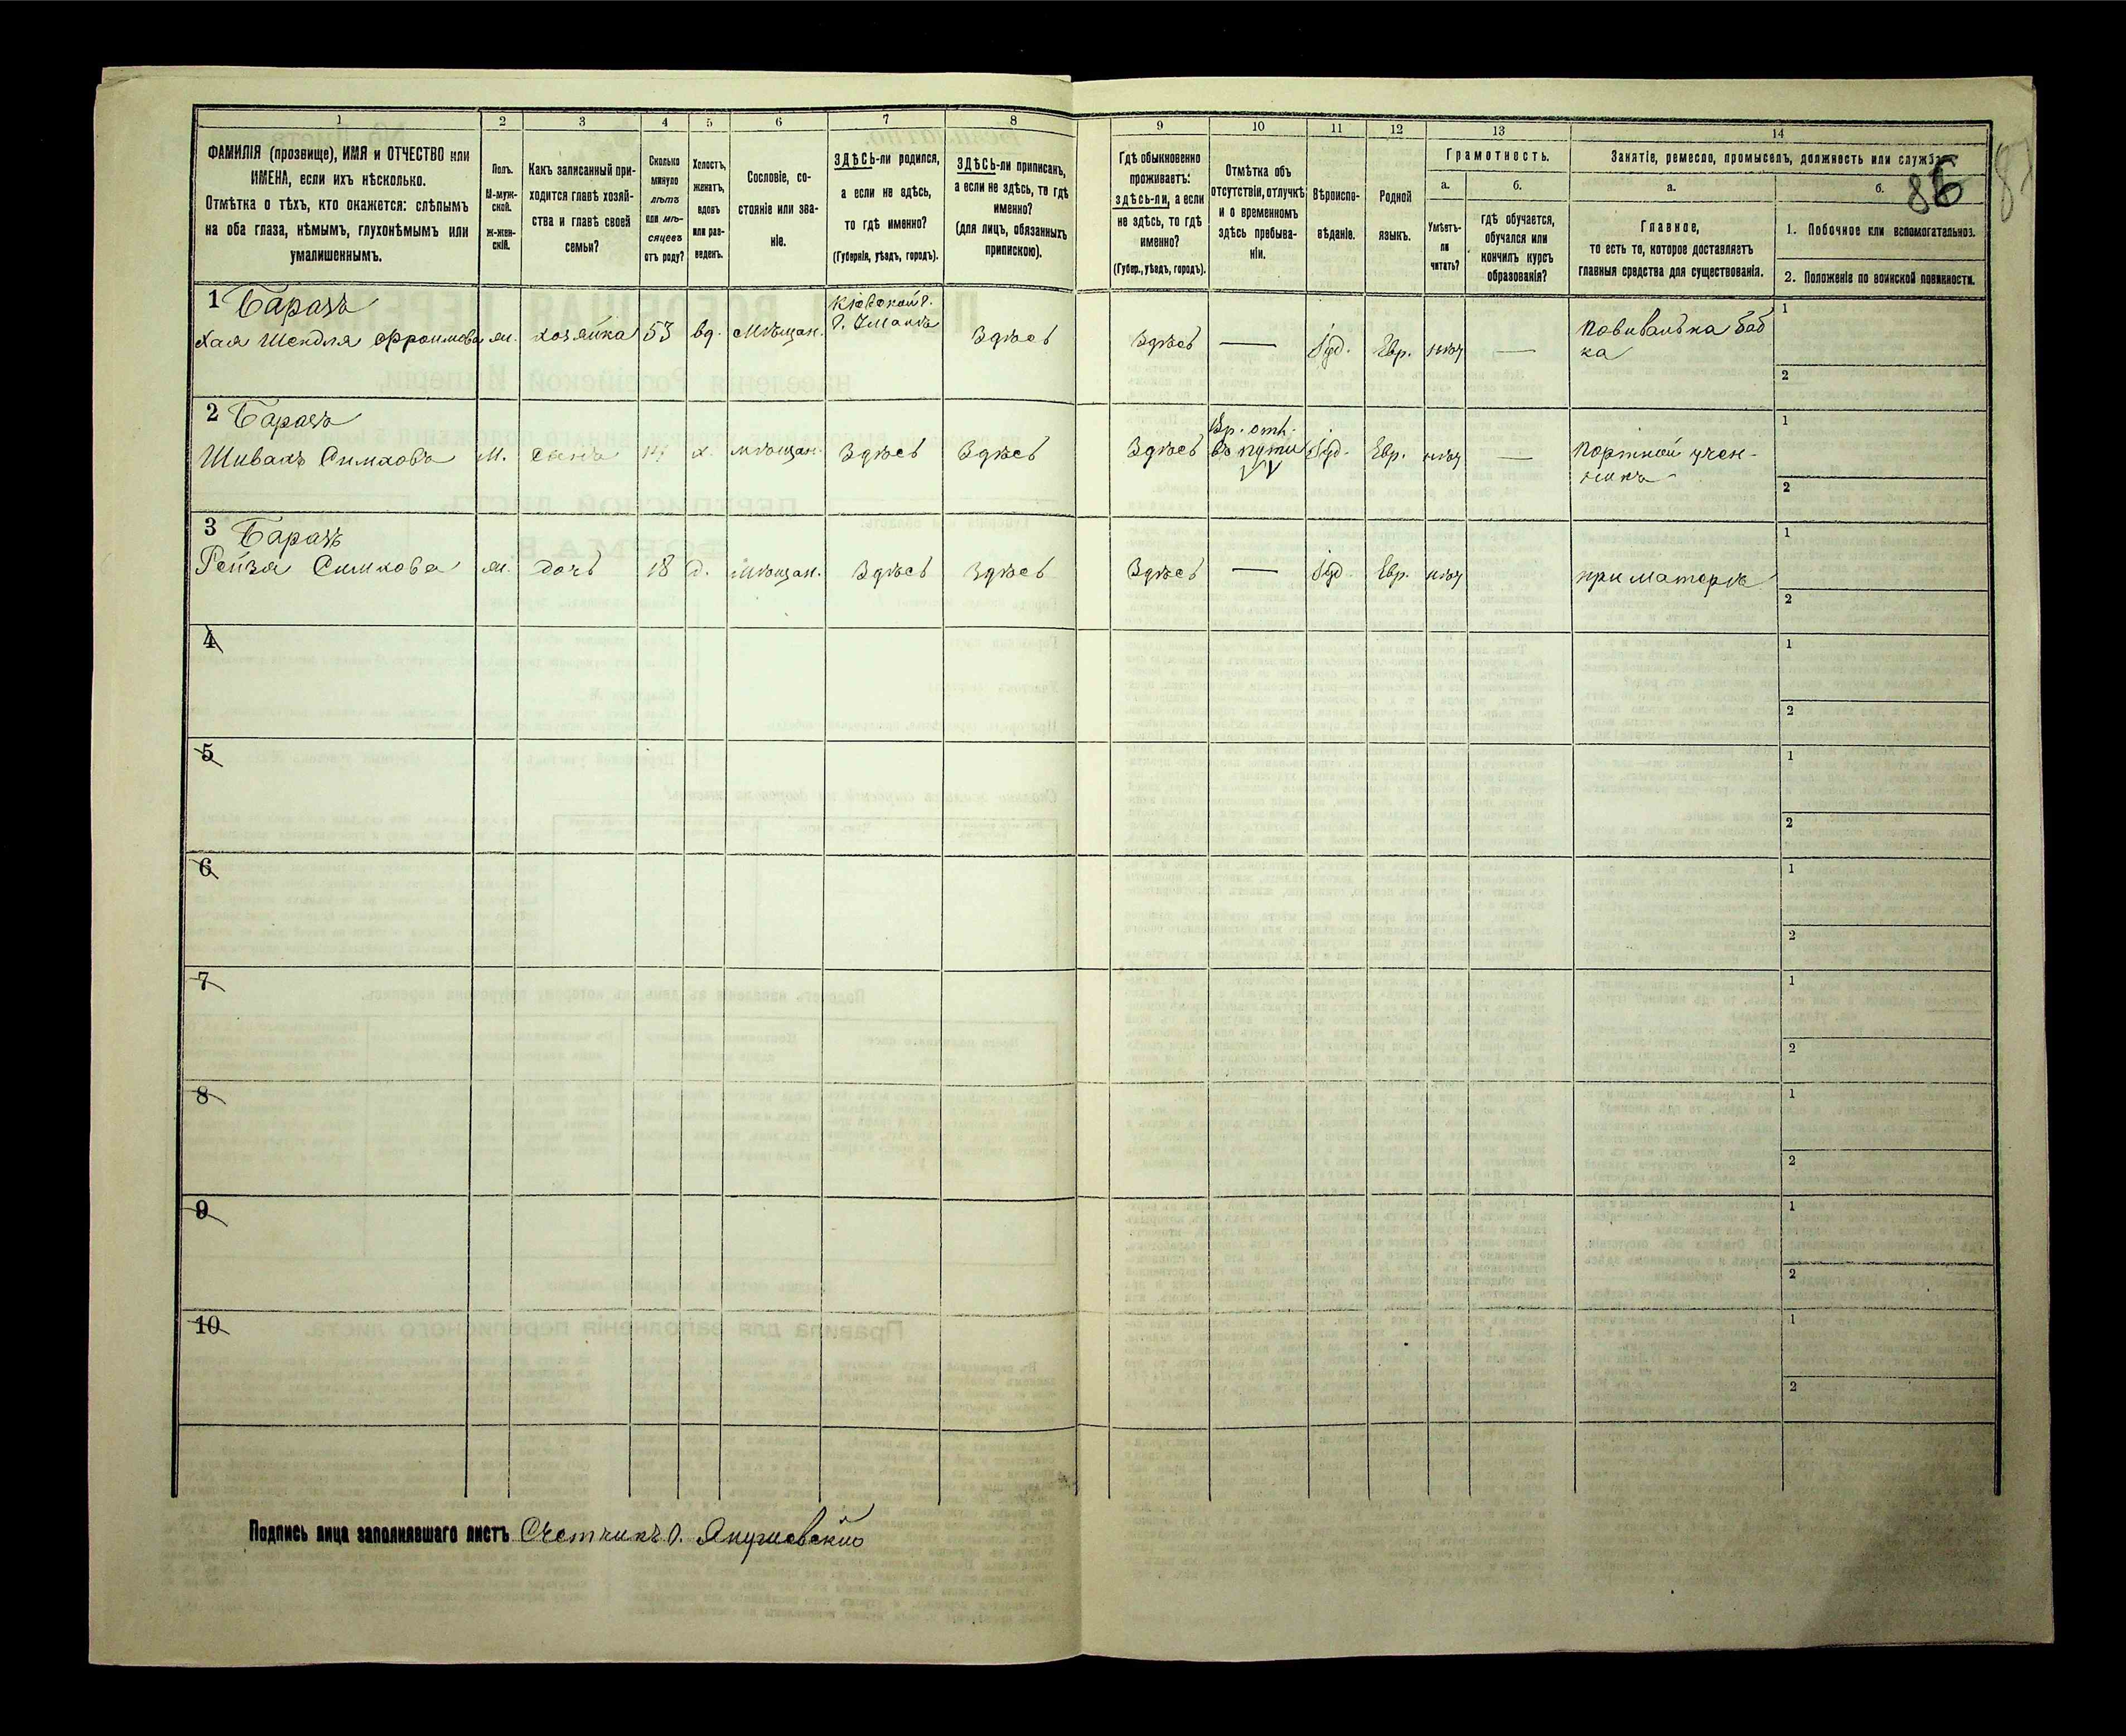 1 2 3 4 5 6 7 8 9 10 11 12 13 14
ФАМИЛІЯ (прозвище), ИМЯ и ОТЧЕСТВО или
ИМЕНА, если ихъ нѣсколько.
Отмѣтка о тѣхъ, кто окажется: слѣпымъ
на оба глаза, нѣмымъ, глухонѣмымъ или
умалишеннымъ.
Полъ.
М-муж-
ской.
Ж-жен-
скій.
Какъ записанный при-
ходится главѣ хозяй-
ства и главѣ своей
семьи?
Сколько
минуло
лѣтъ
или мѣ-
сяцевъ
отъ роду?
Холостъ,
женатъ,
вдовъ
или раз-
веденъ.
Сословіе, со-
стояніе или зва-
ніе.
ЗДѢСЬ-ли родился,
а если не здѣсь,
то гдѣ именно?
(Губернія, уѣздъ, городъ).
ЗДѢСЬ-ли приписанъ,
а если не здѣсь, то гдѣ
именно?
(для лицъ, обязанныхъ
припискою).
Гдѣ обыкновенно
проживаетъ:
здѣсь-ли, а если
не здѣсь, то гдѣ
именно?
(Губер., уѣздъ, городъ).
Отмѣтка объ
отсутствіи, отлучкѣ
и о временномъ
здѣсь пребыва-
ніи.
Вѣроиспо-
вѣданіе.
Родной
языкъ.
Грамотность.
а.
Умѣетъ-
ли
читать?
б.
гдѣ обучается,
обучался или
кончилъ курсъ
образованія?
Занятіе, ремесло, промыселъ, должность или служба.
а.
Главное,
то есть то, которое доставляетъ
главныя средства для существованія.
б.
86
1. Побочное или вспомогательное.
2. Положеніе по воинской повинности.
1 Баразъ
Хая Шендля Фроимова ж. хозяйка 53 вд. мѣщан. Кіевской г. г. Умань Здѣсь Здѣсь — Іуд. Евр. нѣт — Повивальна баб
ка
1
2
2 Баразъ
Шивахъ Симховъ М. сынъ 14 х. мѣщан. Здѣсь Здѣсь Здѣсь Вр. отл. въ пути Іуд. Евр. нѣт — Портной учен-
никъ
1
2
3 Баразъ
Рейзя Симхова ж. дочь 18 д. мѣщан. Здѣсь Здѣсь Здѣсь — Іуд. Евр. нѣт при матеръ
1
2
4
1
2
5
1
2
6
1
2
7
1
2
8
1
2
9
1
2
10
1
2
Подпись лица заполнявшаго листъ Счетчикъ